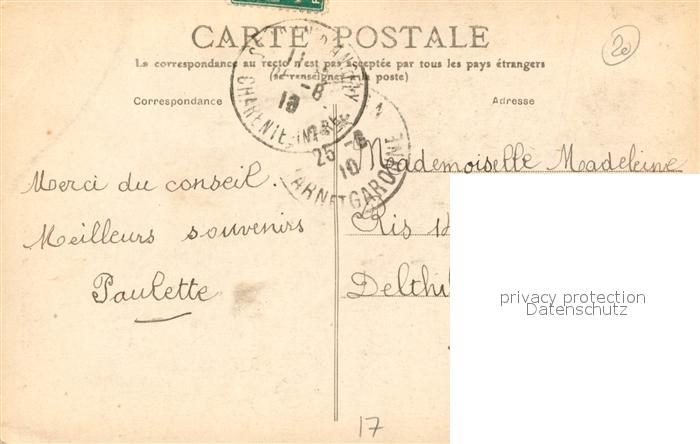 CARTE POSTALE
La correspondance au recto n'est pas acceptée par tous les pays étrangers
(se renseigner à la poste)
Correspondance
Adresse
20
CHARENTE INFRE
11
-8
10
25 -8
10
TARN ET GARONNE
Merci du conseil.
Meilleurs souvenirs
Paulette
Mademoiselle Madeleine
Ris
Delthil
privacy protection
Datenschutz
17